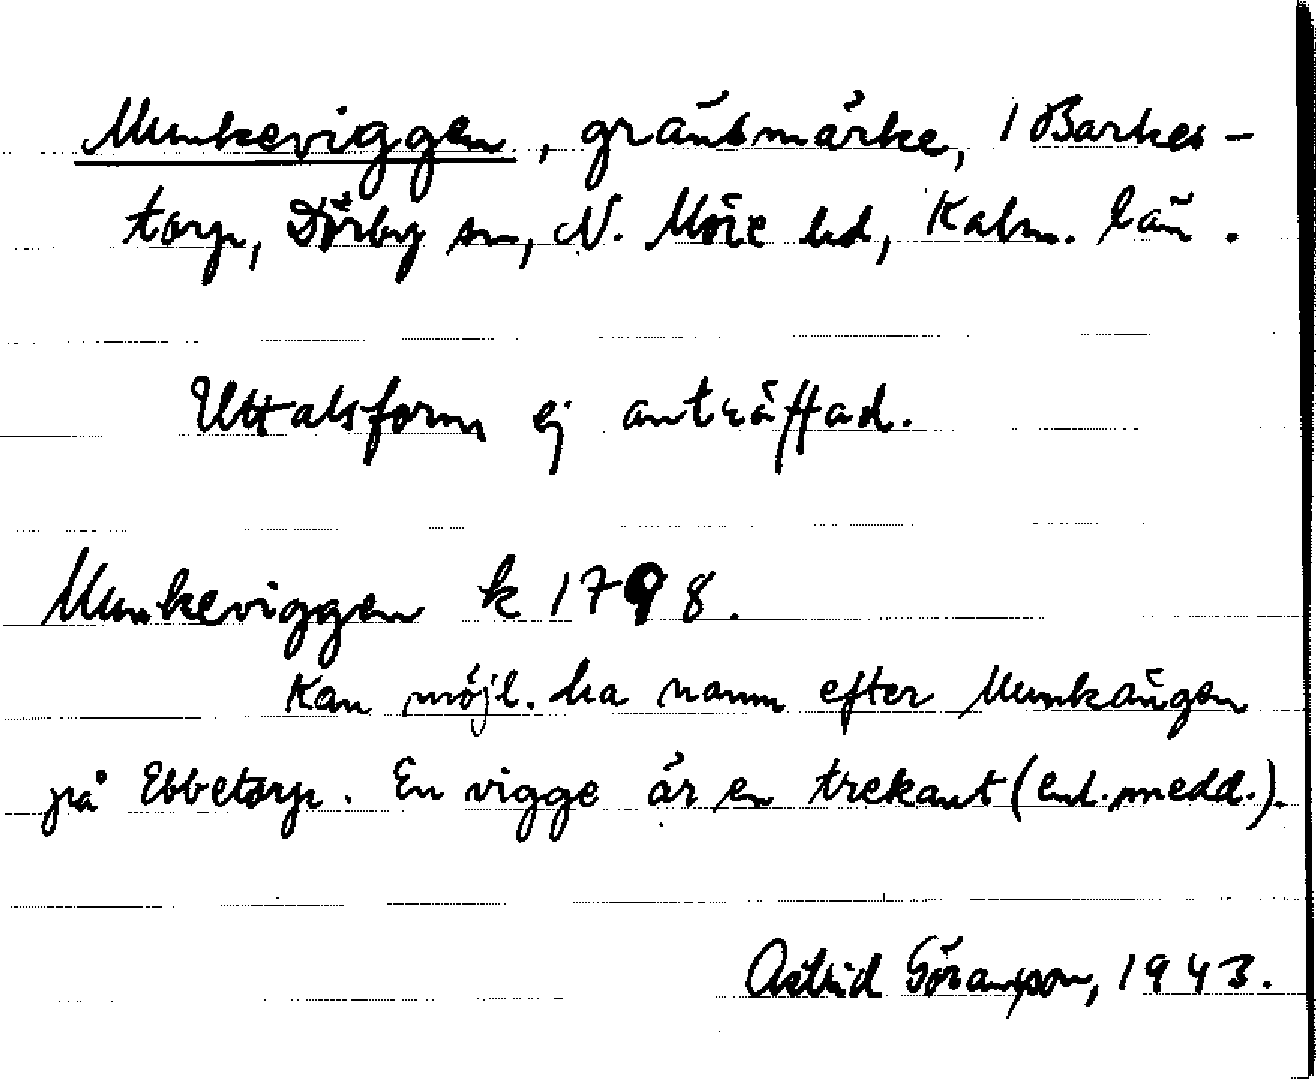 Munkeviggen, gränsmärke, 1 Barkes-
torp, Dörby sn, N. Möre hd, Kalm. län.
Uttalsform ej anträffad.
Munkeviggen k 1798.
Kan möjl. ha namn efter Munkängen
på Ebbetorp. En vigge är en trekant (enl. medd.).
Astrid Göransson, 1943.